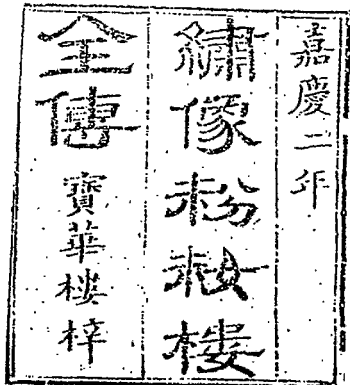 嘉慶二年
繡像粉粧樓
全傳 寶華樓梓